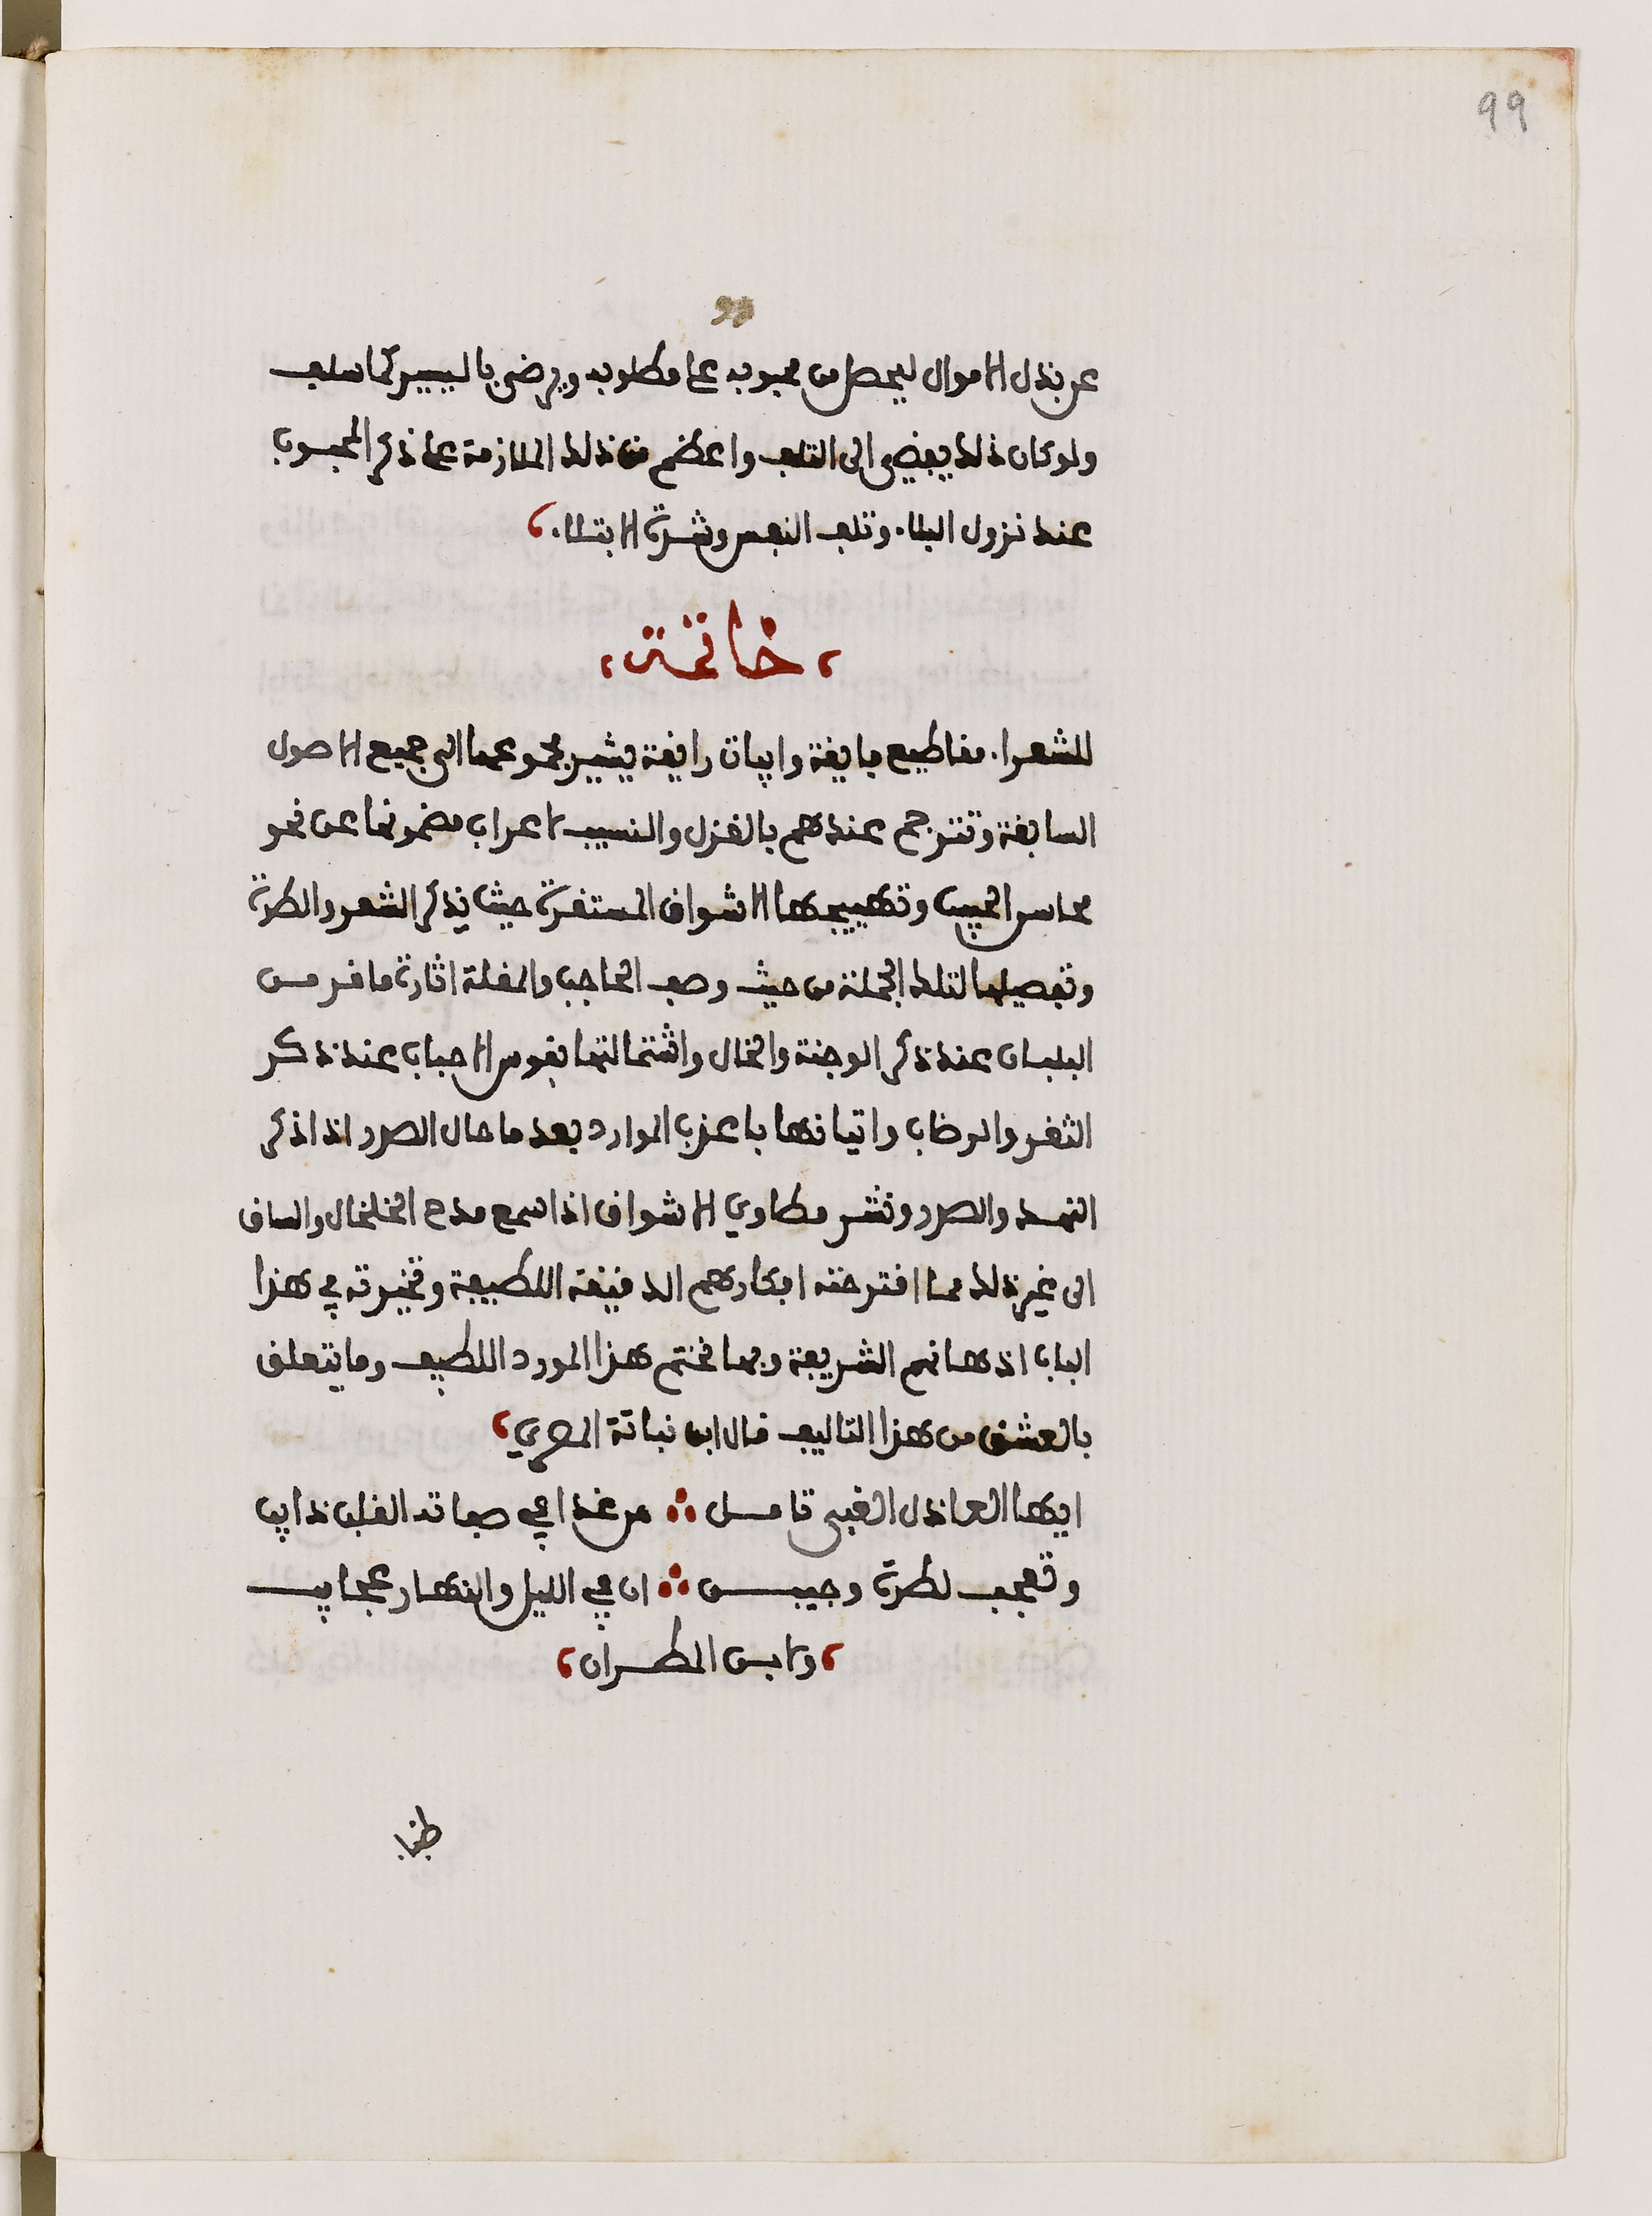 99
عن بذل الاموال ليحصل من محبوبه على مطلوبه ويرضى باليسير كما سلف
ولو كان ذلك يفضي الى التلف واعظم من ذلك الملازمة على ذكر المحبوب
عند نزول البلاء وتلف النفس وشدة الابتلاء
خاتمة
للشعراء مقاطيع فايقة وابيات رايقة يشير مجموعها الى جميع الاصول
السابقة وتترجم عندهم بالغزل والنسيب لاعراب مضمونها عن نحو
محاسن الحبيب وتهييجها الاشواق المستقرة حيث يذكر الشعر والطرة
وتفصيلها لتلك الجملة من حيث وصف الحاجب والمقلة اثارة ما قر من
البلبان عند ذكر الوجنة والخال واشتمالتها بقوس الاحباب عند ذكر
الثغر والرضاب واتيانها باعذب الموارد بعد ما حال الصدر اذا ذكر
النهد والصدر ونشر مطاوي الاشواق اذا سمع مدح الخلخال والساق
الى غير ذلك مما اقترحته افكارهم الدقيقة اللطيفة وتخيرته في هذا
الباب اذهانهم الشريفة وبها نختم هذا المورد اللطيف وما يتعلق
بالعشق من هذا التاليف قال ابن نباتة المصري
ايها العاذل الغبي تامل ∴ من غدا في صفاته القلب ذايب
وتعجب لطرة وجبين ∴ ان في الليل والنهار عجايب
ولابن المطران
ظبا